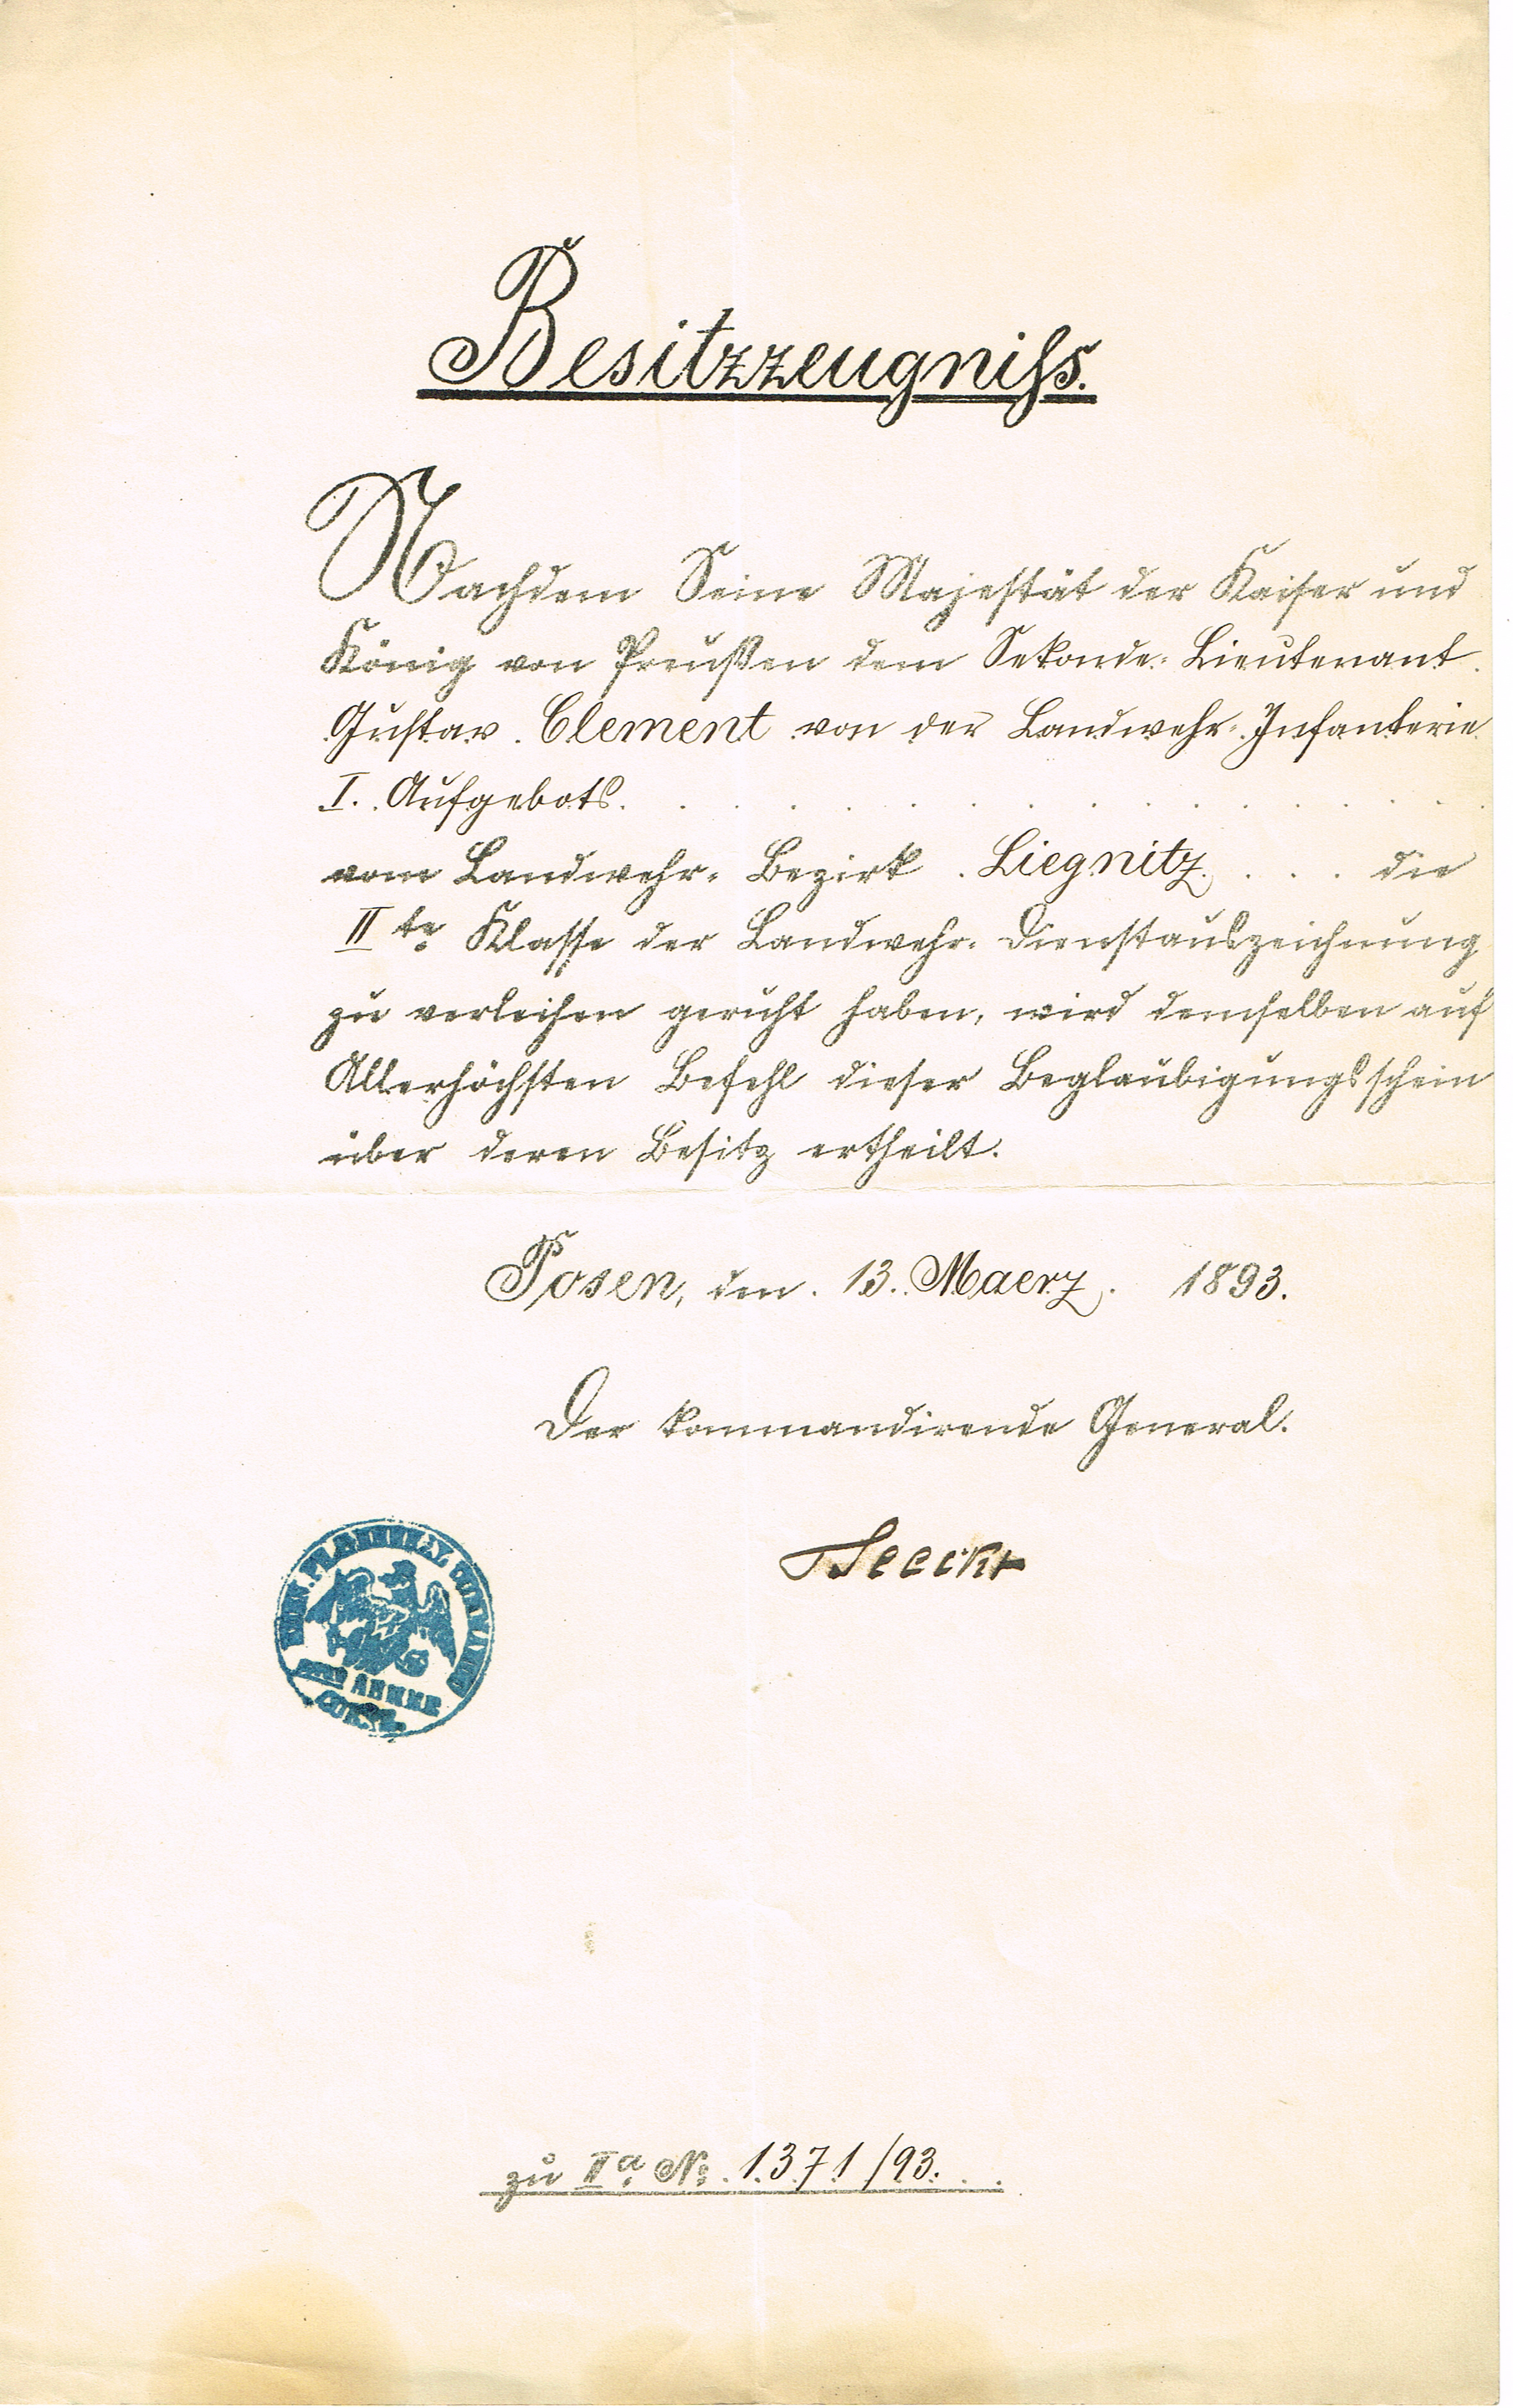 Besitzzeugniſs.
Nachdem Seine Majestät der Kaiser und
König von Preußen dem Sekonde-Lieutenant
Gustav Clement von der Landwehr-Infanterie
I. Aufgebots.
vom Landwehr-Bezirk Liegnitz die
IIte Klasse der Landwehr-Dienstauszeichnung
zu verleihen geruht haben, wird demselben auf
Allerhöchsten Befehl dieser Beglaubigungsschein
über deren Besitz ertheilt.
Posen, den 13. Maerz 1893.
Der kommandirende General.
Seeckt
ARMEE
CORPS
zu IIa No. 1371/93.